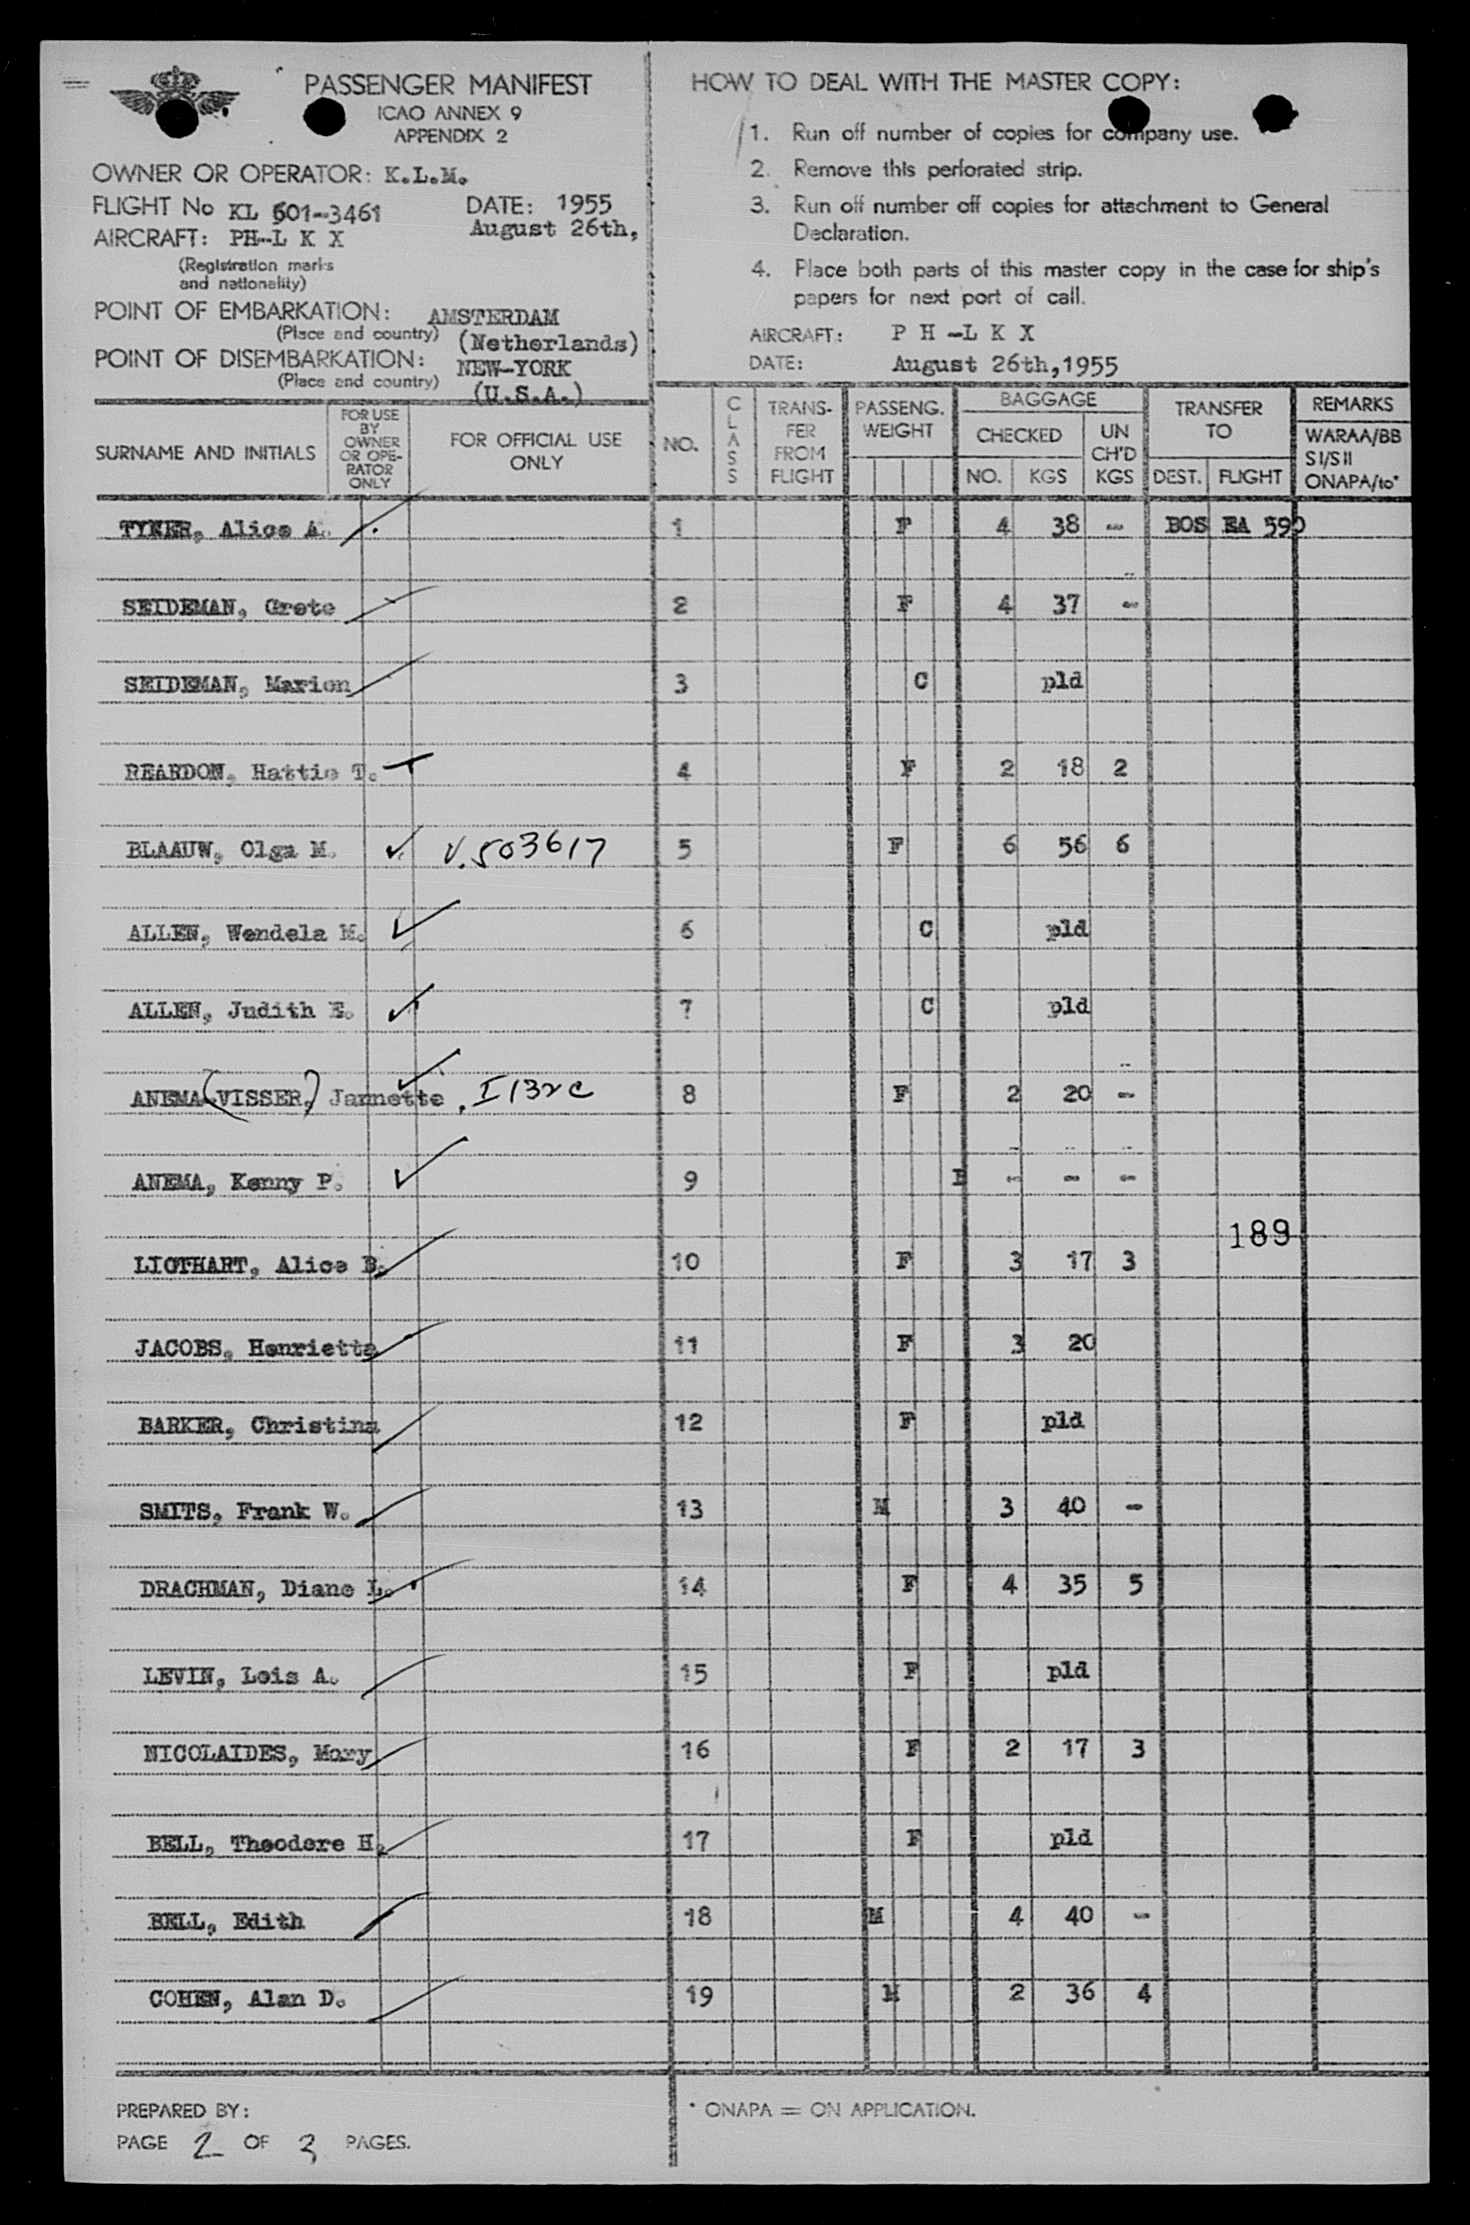 PASSENGER MANIFEST
ICAO ANNEX 9
APPENDIX 2
OWNER OR OPERATOR: K.L.M.
FLIGHT No KL 601-3461 DATE: 1955
August 26th,
AIRCRAFT: PH-L K X
(Registration marks
and nationality)
POINT OF EMBARKATION: AMSTERDAM
(Place and country) (Netherlands)
POINT OF DISEMBARKATION: NEW-YORK
(Place and country) (U.S.A.)
HOW TO DEAL WITH THE MASTER COPY:
1. Run off number of copies for company use.
2. Remove this perforated strip.
3. Run off number off copies for attachment to General
Declaration.
4. Place both parts of this master copy in the case for ship's
papers for next port of call.
AIRCRAFT: P H -L K X
DATE: August 26th,1955
SURNAME AND INITIALS
FOR USE
BY
OWNER
OR OPE-
RATOR
ONLY
FOR OFFICIAL USE
ONLY
NO.
CLASS
TRANS-
FER
FROM
FLIGHT
PASSENG.
WEIGHT
BAGGAGE
CHECKED
NO. KGS
UN
CH'D
KGS
TRANSFER
TO
DEST. FLIGHT
REMARKS
WARAA/BB
SI/SII
ONAPA/to*
TYNER, Alice A. 1 F 4 38 - BOS EA 590
SEIDEMAN, Grete 2 F 4 37 -
SEIDEMAN, Marion 3 C pld
REARDON, Hattie T. 4 F 2 18 2
BLAAUW, Olga M. V.503617 5 F 6 56 6
ALLEN, Wendela M. 6 C pld
ALLEN, Judith E. 7 C pld
ANEMA(VISSER,) Jannette . I132C 8 F 2 20 -
ANEMA, Kenny P. 9 - - -
189
LIGTHART, Alice B. 10 F 3 17 3
JACOBS, Henrietta 11 F 3 20
BARKER, Christina 12 F pld
SMITS, Frank W. 13 M 3 40 -
DRACHMAN, Diane L. 14 F 4 35 5
LEVIN, Lois A. 15 F pld
NICOLAIDES, Mary 16 F 2 17 3
BELL, Theodore H. 17 F pld
BELL, Edith 18 M 4 40 -
COHEN, Alan D. 19 M 2 36 4
PREPARED BY:
PAGE 2 OF 3 PAGES.
* ONAPA = ON APPLICATION.